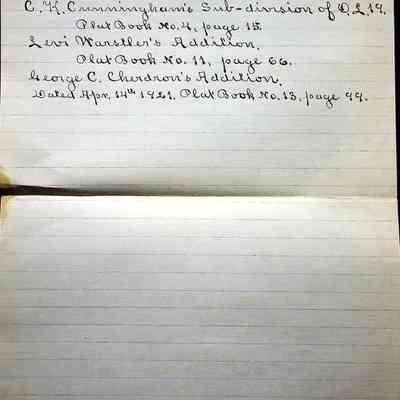 C. K. Cunningham's Sub-division of O.L. 19.
Plat Book No. 4, page 15
Levi Warstler's Addition.
Plat Book No. 11, page 66.
George C. Cherdron's Addition.
Dated Apr. 14th 1921. Plat Book No. 13, page 99.